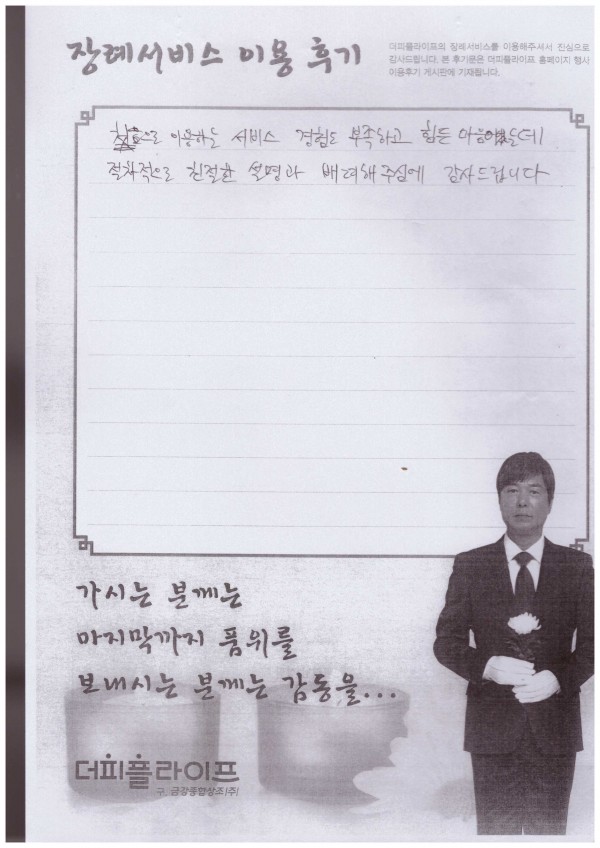 장례서비스 이용 후기
더피플라이프의 장례서비스를 이용해주셔서 진심으로
감사드립니다. 본 후기문은 더피플라이프 홈페이지 행사
이용후기 게시판에 기재됩니다.
으로 이용하는 서비스 경험도 부족하고 힘든 는데
절차적으로 친절한 설명과 배려해 주심에 감사드립니다
가시는 분께는
마지막까지 품위를
보내시는 분께는 감동을...
더피플라이프
구. 금강종합상조(주)